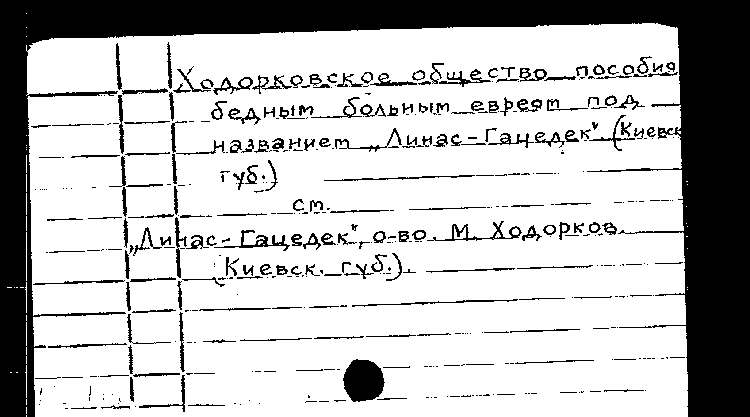 Ходорковское общество пособия
бедным больным евреям под
названием „Линас-Гацедек". (Киевск
губ.)
см.
„Линас-Гацедек", о-во. М. Ходорков.
(Киевск. губ.).